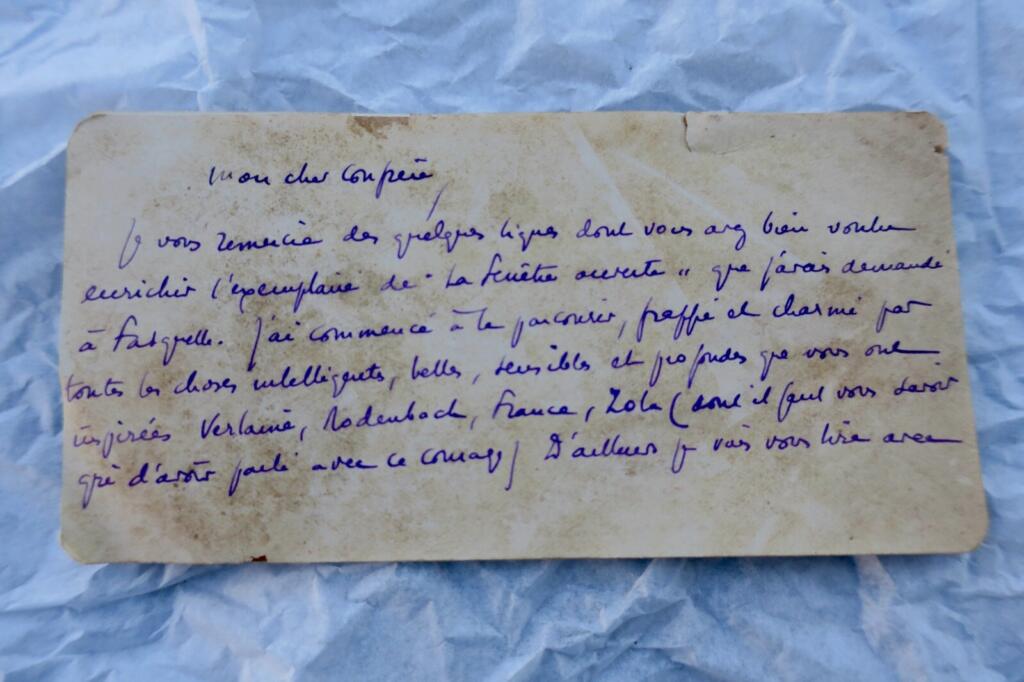 Mon cher confrère,
Je vous remercie des quelques lignes dont vous avez bien voulu
enrichir l'exemplaire de "La fenêtre ouverte" que j'avais demandé
à Fasquelle. J'ai commencé à le parcourir, frappé et charmé par
toutes les choses intelligentes, belles, sensibles et profondes que vous ont
inspirées Verlaine, Rodenbach, France, Zola (dont il faut vous savoir
gré d'avoir parlé avec ce courage) D'ailleurs je vais vous lire avec